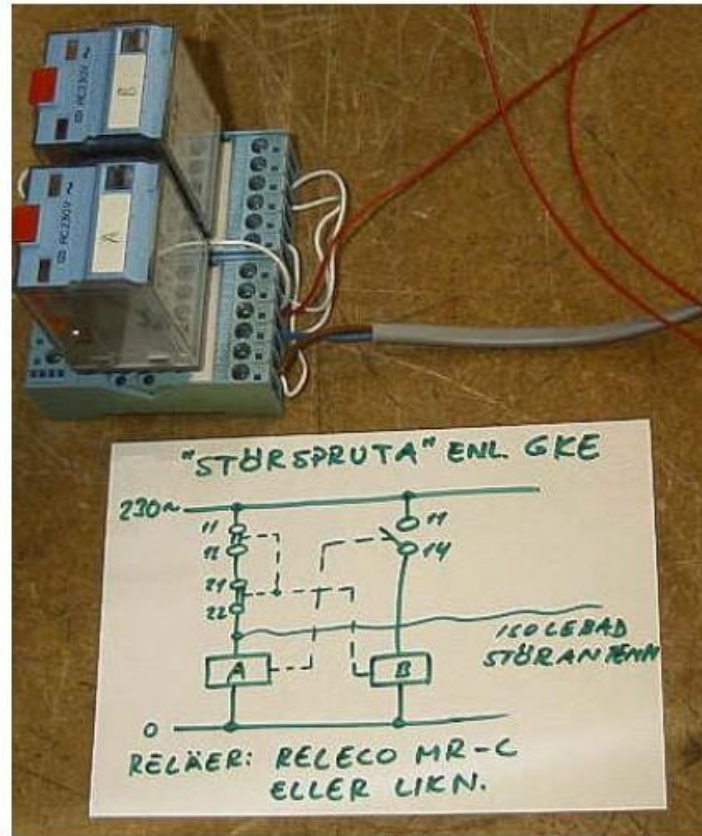 B
AC230V ~
A
AC230V ~
"STÖRSPRUTA" ENL. GKE
230~
11
11
12
14
21
22
ISOLERAD
STÖRANTENN
A
B
0
RELÄER: RELECO MR-C
ELLER LIKN.